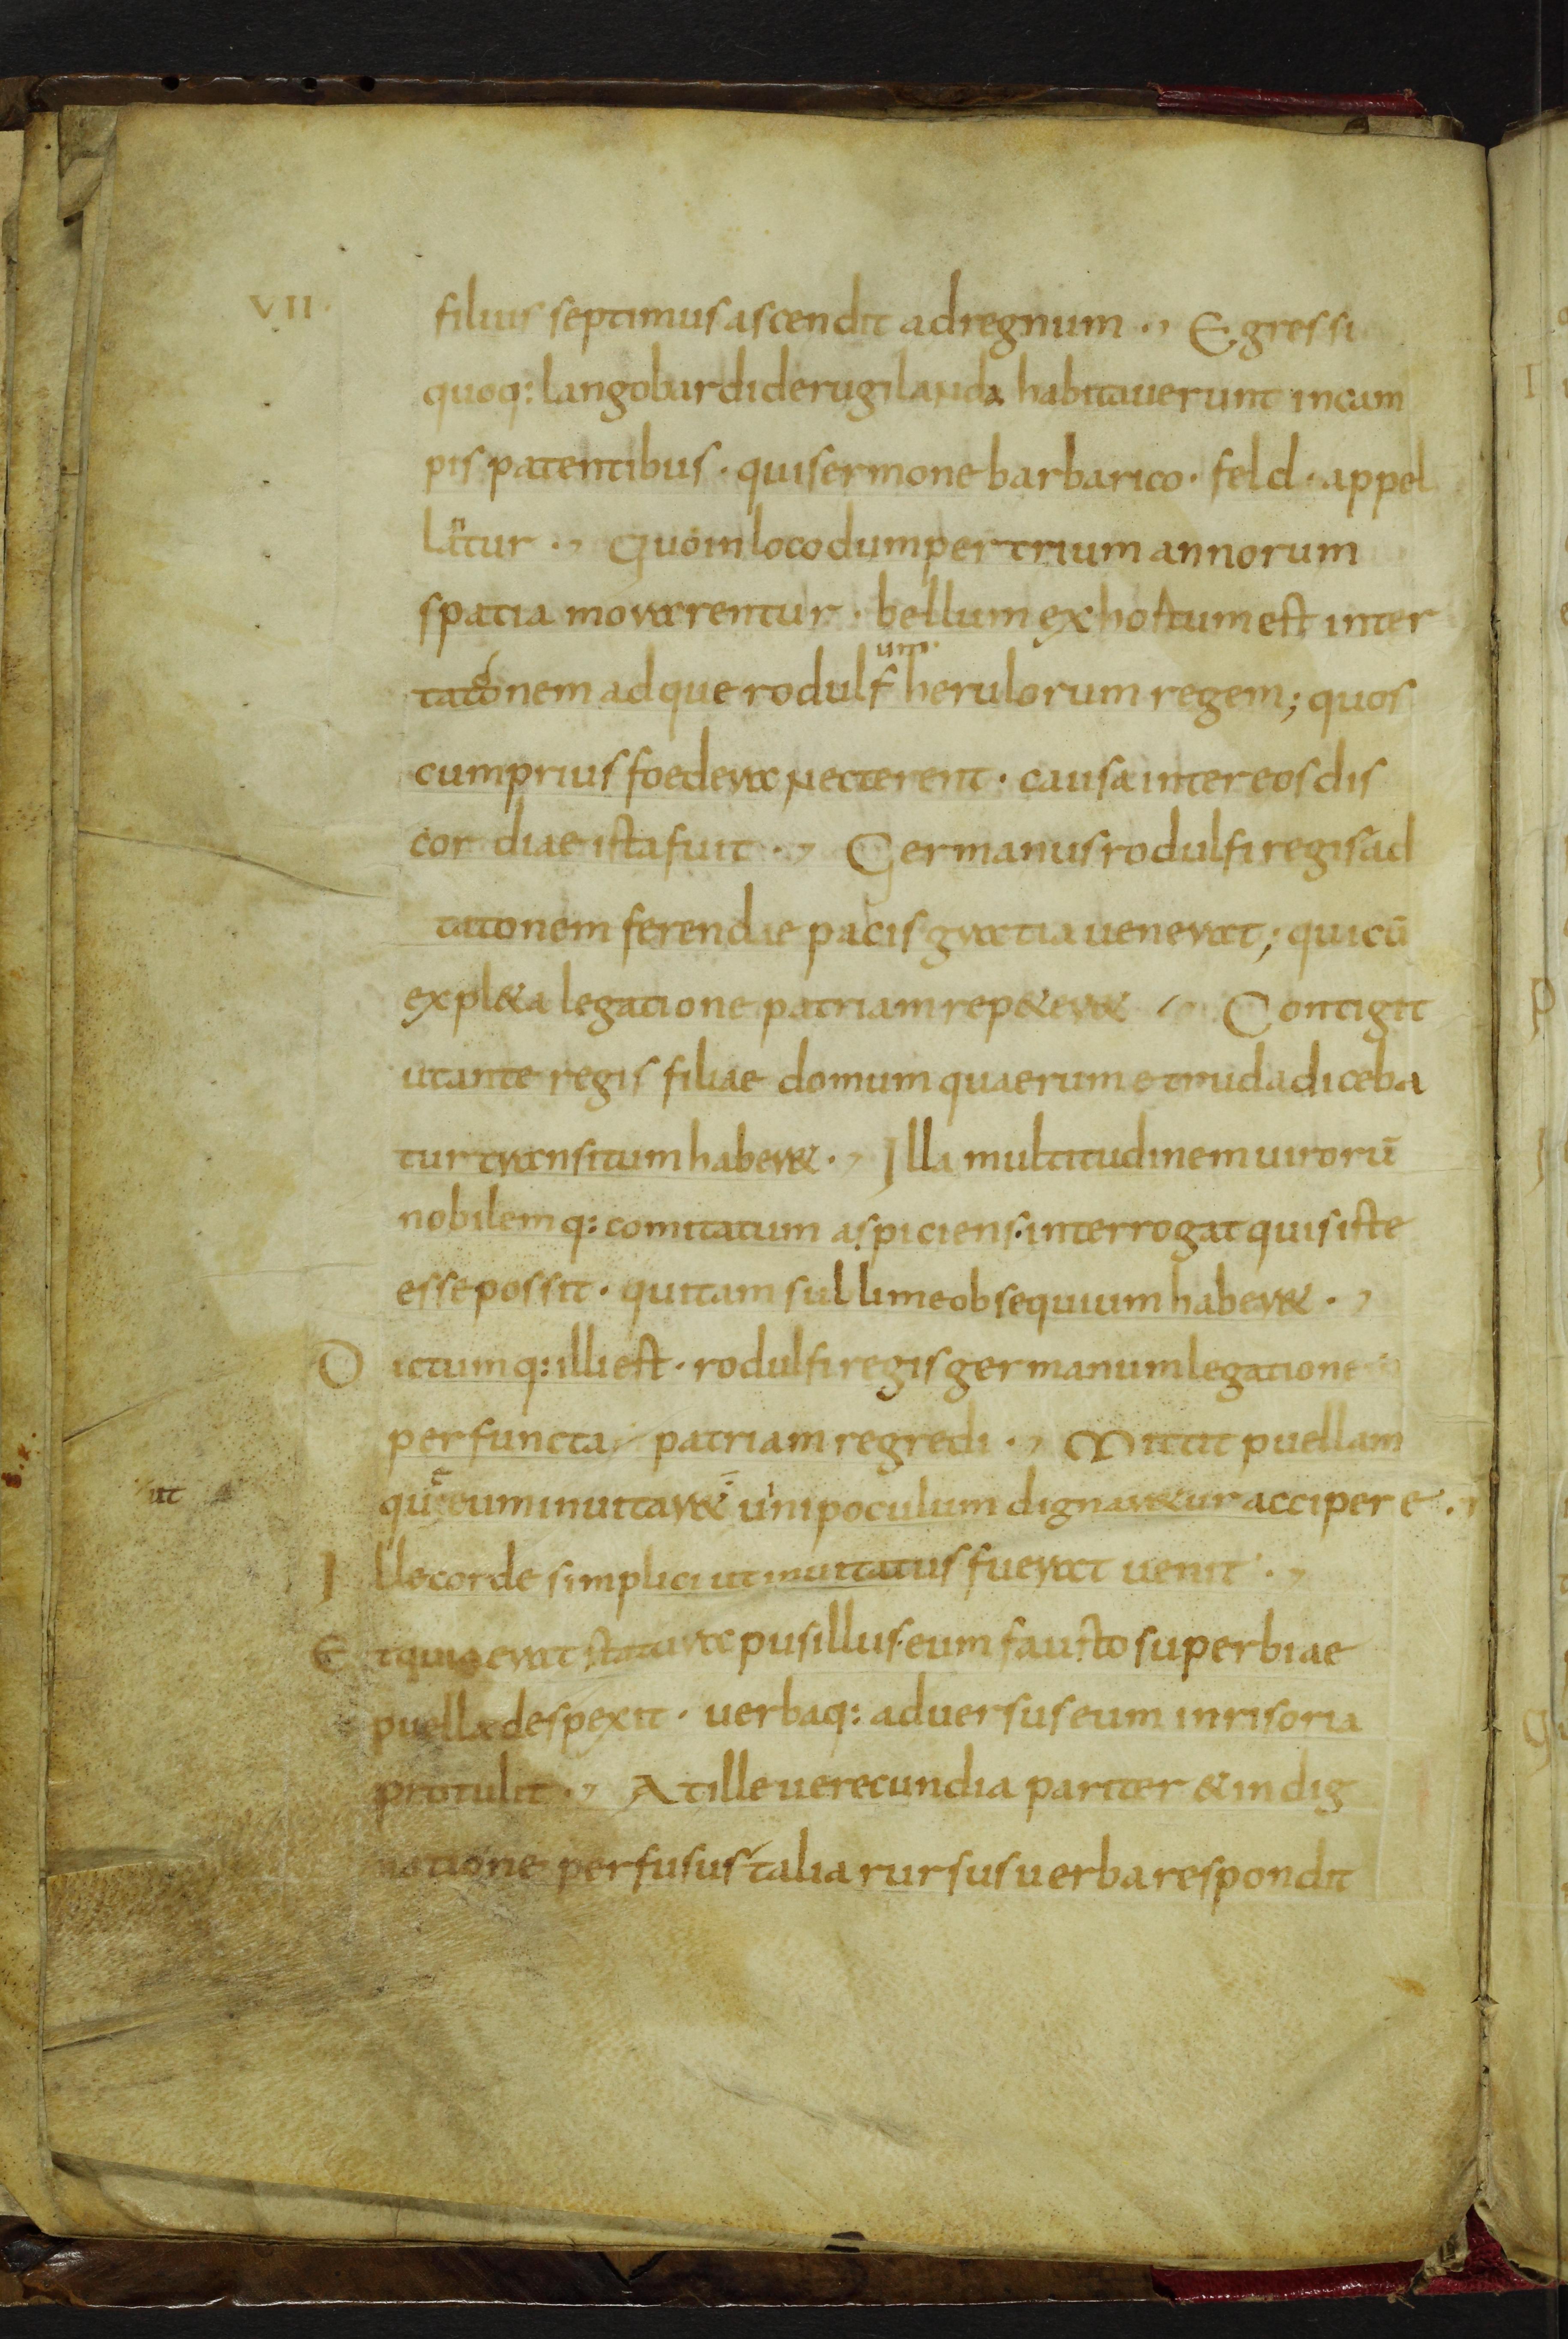 VII· filius septimus ascendit ad regnum ·, Egressi
quoq: langobardi de rugilanda habitauerunt in cam
pis patentibus · qui sermone barbarico · feld · appel
latur ·, Quo in loco dum per trium annorum
spatia morarentur · bellum exhortum est inter
um
tatonem adque rodulf herulorum regem; quos
cum prius foedera necterent · causa inter eos dis
cordiae ista fuit ·, Germanus rodulfi regis ad
tatonem ferendae pacis gratia uenerat; qui cū
expl&a legatione patriam rep&er& ·, Contigit
ut ante regis filiae domum quae rumetruda diceba
tur transitum haber& ·, Illa multitudinem uirorū
nobilemq: comitatum aspiciens · interrogat quis iste
esse possit · qui tam sullime obsequium haber& ·,
Dictumq: illi est · rodulfi regis germanum legatione
perfuncta patriam regredi ·, Mittit puella
ut
eum inuitar& uini poculum dignar&ur accipere ·,
Ille corde simplici ut inuitatus fuerat uenit ·,
Et quia erat statura pusillus eum fausto superbiae
puella despexit · uerbaq: aduersus eum inrisoria
protulit ·, At ille uerecundia pariter & indig
natione perfusus talia rursus uerba respondit